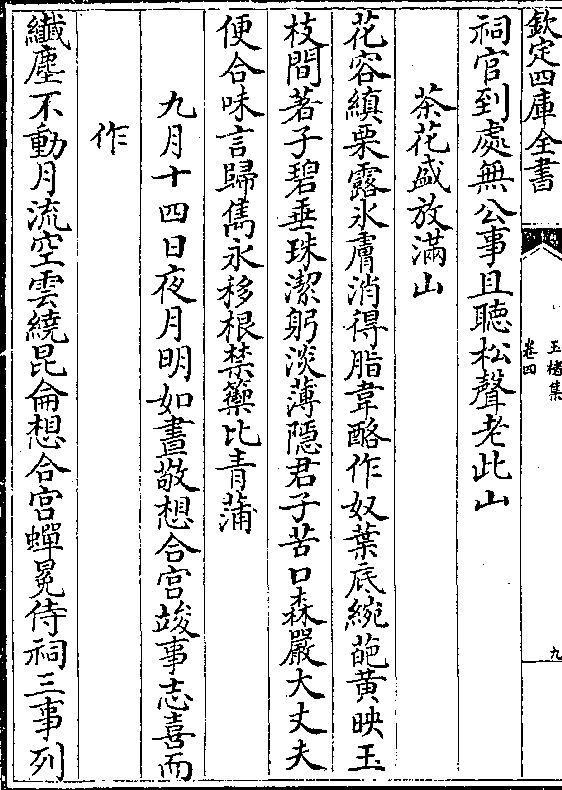 欽定四庫全書
玉楮集
卷四
九
祠官到處無公事且聽松聲老此山
茶花盛放滿山
花容縝栗露氷膚消得脂韋酪作奴葉底綰葩黄映玉
枝間著子碧垂珠潔躬淡薄隱君子苦口森嚴大丈夫
便合味言歸雋永移根禁籞比青蒲
九月十四日夜月明如晝敬想合宮竣事志喜而
作
纎塵不動月流空雲繞昆侖想合宮蟬冕侍祠三事列